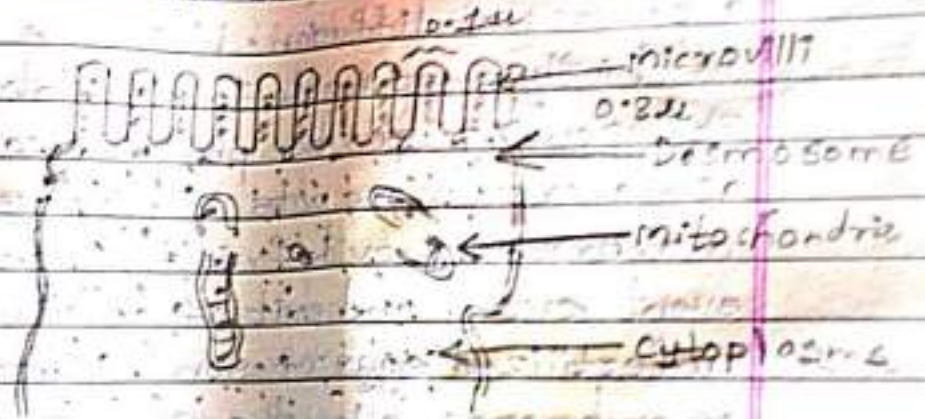 0.1u
microvilli
0.8u
Desmosome
mitochondria
cytoplasms